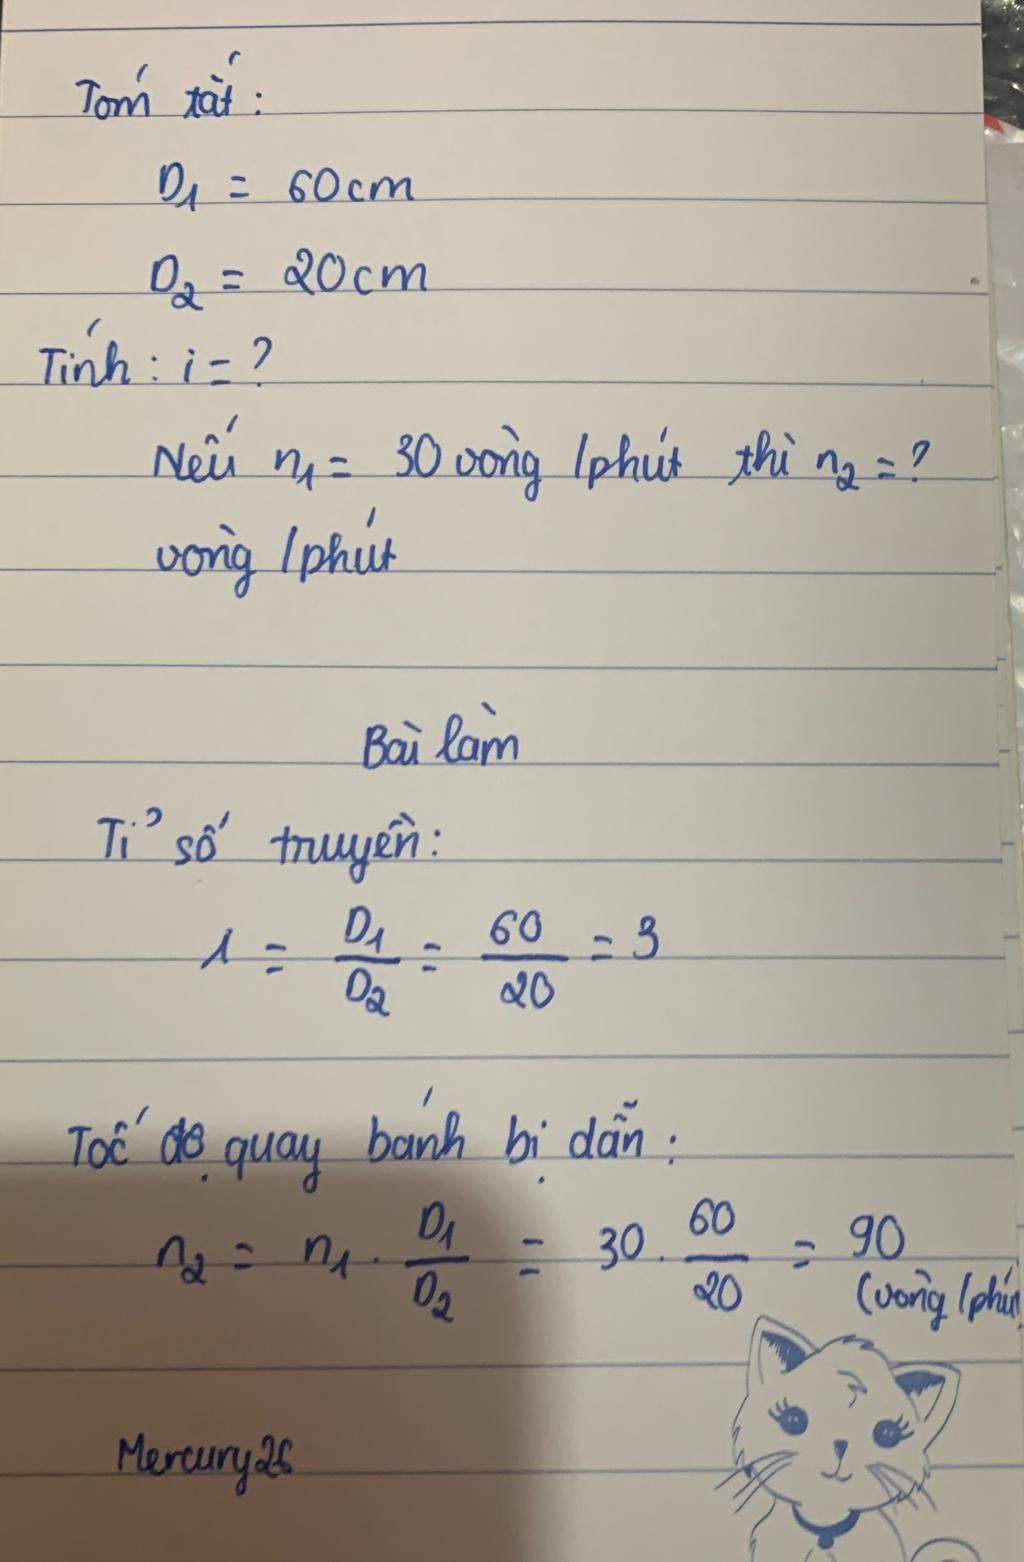 Tóm tắt:
D1 = 60cm
D2 = 20cm
Tính: i = ?
Nếu n1 = 30 vòng/phút thì n2 = ?
vòng/phút
Bài làm
Tỉ số truyền:
i = D1/D2 = 60/20 = 3
Tốc độ quay bánh bị dẫn:
n2 = n1 . D1/D2 = 30 . 60/20 = 90
(vòng/phú
Mercury26